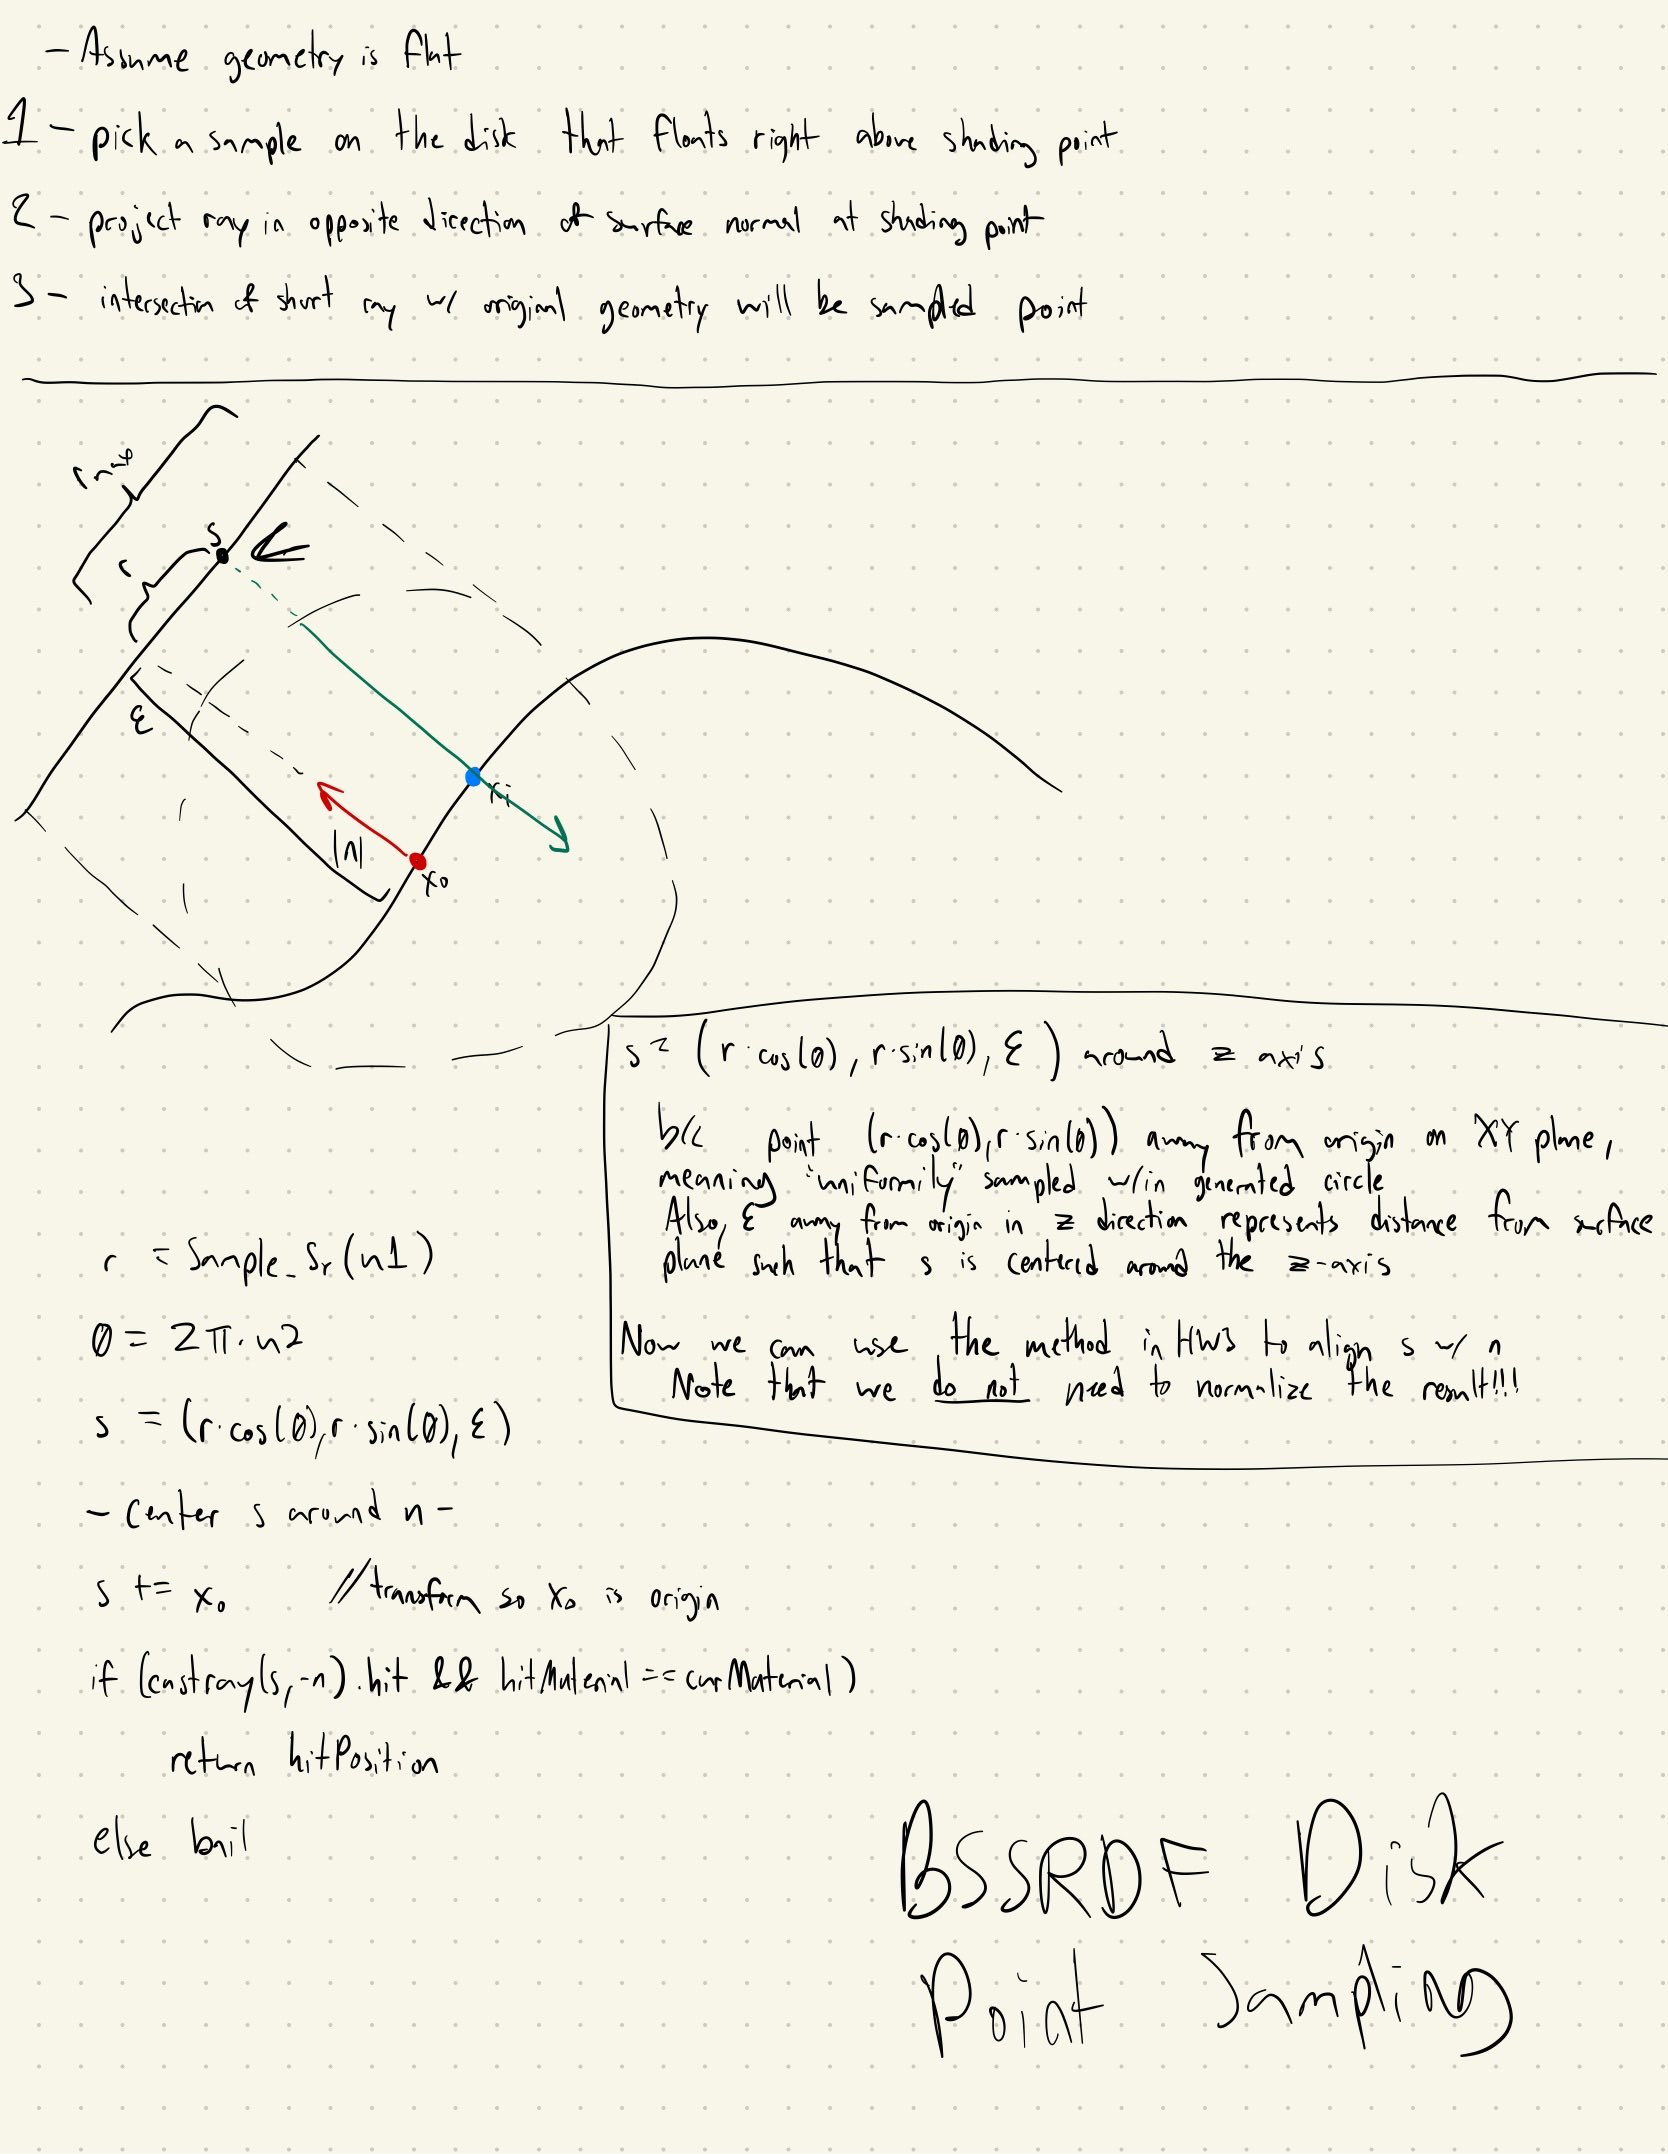 - Assume geometry is flat
1 - pick a sample on the disk that floats right above shading point
2 - project ray in opposite direction of surface normal at shading point
3 - intersection of short ray w/ original geometry will be sampled point
rmax
s
r
ε
|n|
xi
xo
s = (r·cos(Ø), r·sin(Ø), ε) around z axis
b/c point (r·cos(Ø), r·sin(Ø)) away from origin on XY plane,
meaning "uniformily" sampled w/in generated circle
Also, ε away from origin in z direction represents distance from surface
plane such that s is centered around the z-axis
Now we can use the method in HW3 to align s w/ n
Note that we do not need to normalize the result!!!
r = Sample_Sr(u1)
Ø = 2π·u2
s = (r·cos(Ø), r·sin(Ø), ε)
- Center s around n -
s += xo //transform so xo is origin
if (castray(s,-n).hit && hitMaterial == curMaterial)
return hitPosition
else bail
BSSRDF Disk
Point Sampling